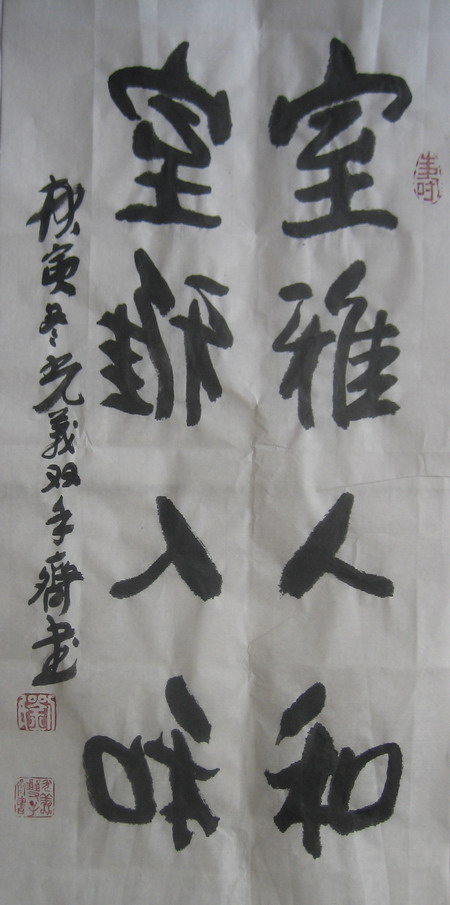 室雅人和
室雅人和
庚寅冬光義双手齊書